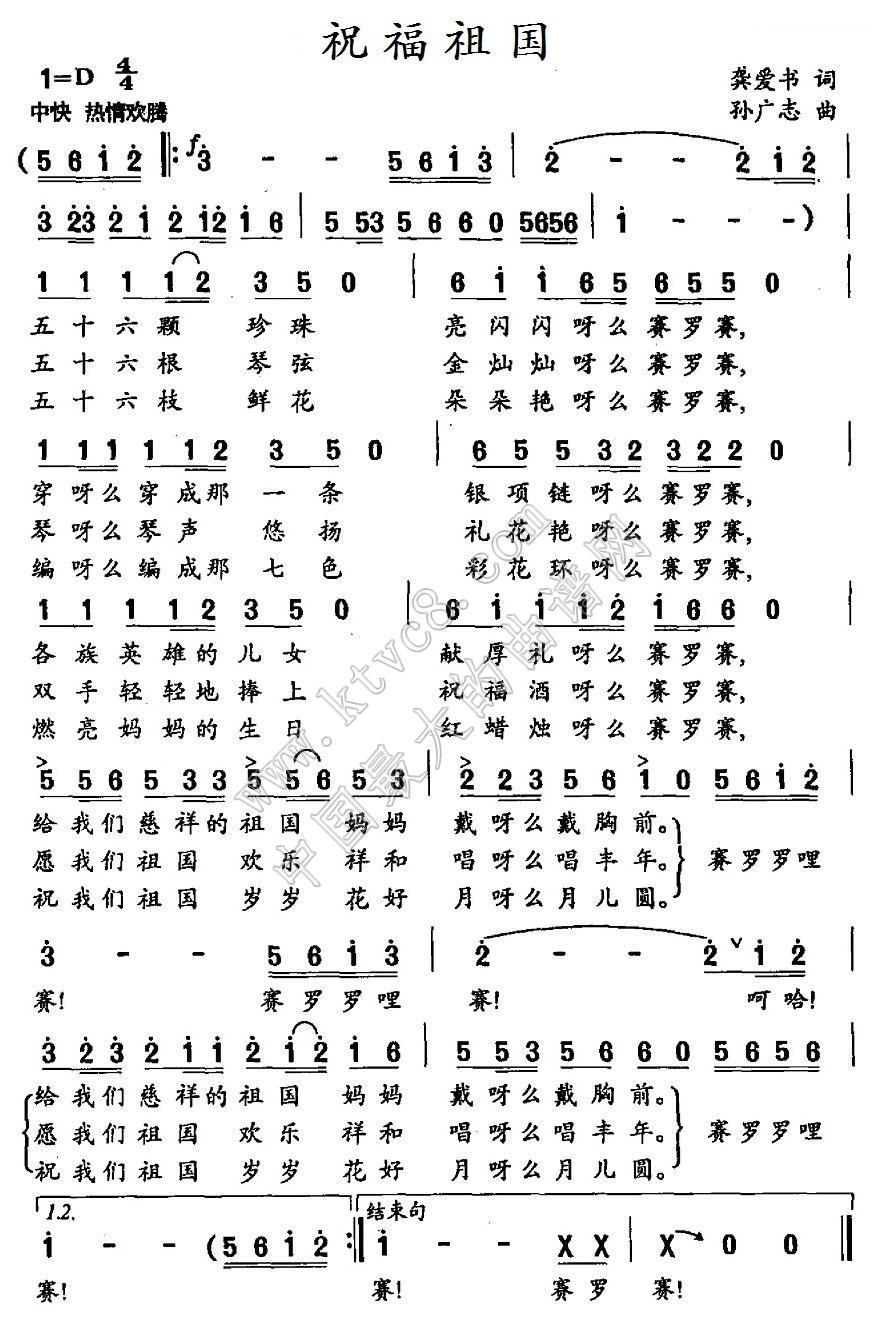 祝福祖国
1=D 4/4
龚爱书 词
中快 热情欢腾
孙广志 曲
(5 6 i 2 ‖: f 3 - - 5 6 i 3 | 2 - - 2 i 2 |
3 23 2 i 2 i2 i 6 | 5 53 5 6 6 0 5656 | i - - -)
1 1 1 1 2 3 5 0 | 6 i i 6 5 6 5 5 0
五十六颗 珍珠 亮闪闪呀么赛罗赛,
五十六根 琴弦 金灿灿呀么赛罗赛,
五十六枝 鲜花 朵朵艳呀么赛罗赛,
1 1 1 1 1 2 3 5 0 | 6 5 5 3 2 3 2 2 0
穿呀么穿成那一条 银项链呀么赛罗赛,
琴呀么琴声 悠扬 礼花艳呀么赛罗赛,
编呀么编成那七色 彩花环呀么赛罗赛,
1 1 1 1 2 3 5 0 | 6 i i i 2 i 6 6 0 |
各族英雄的儿女 献厚礼呀么赛罗赛,
双手轻轻地捧上 祝福酒呀么赛罗赛,
燃亮妈妈的生日 红蜡烛呀么赛罗赛,
> 5 5 6 5 3 3 > 5 5 6 5 3 | > 2 2 3 5 6 > i 0 5 6 i 2 |
给我们慈祥的祖国 妈妈 戴呀么戴胸前。
愿我们祖国 欢乐 祥和 唱呀么唱丰年。 赛罗罗哩
祝我们祖国 岁岁 花好 月呀么月儿圆。
3 - - 5 6 i 3 | 2 - - 2 ∨ i 2 |
赛! 赛罗罗哩 赛! 呵哈!
3 2 3 2 i i 2 i 2 i 6 | 5 5 3 5 6 6 0 5 6 5 6 |
给我们慈祥的祖国 妈妈 戴呀么戴胸前。
愿我们祖国 欢乐 祥和 唱呀么唱丰年。 赛罗罗哩
祝我们祖国 岁岁 花好 月呀么月儿圆。
1.2. 结束句
i - - (5 6 i 2 :‖ i - - X X | X 0 0 ‖
赛! 赛! 赛罗 赛!
www.ktvc8.com
中国最大的曲谱网